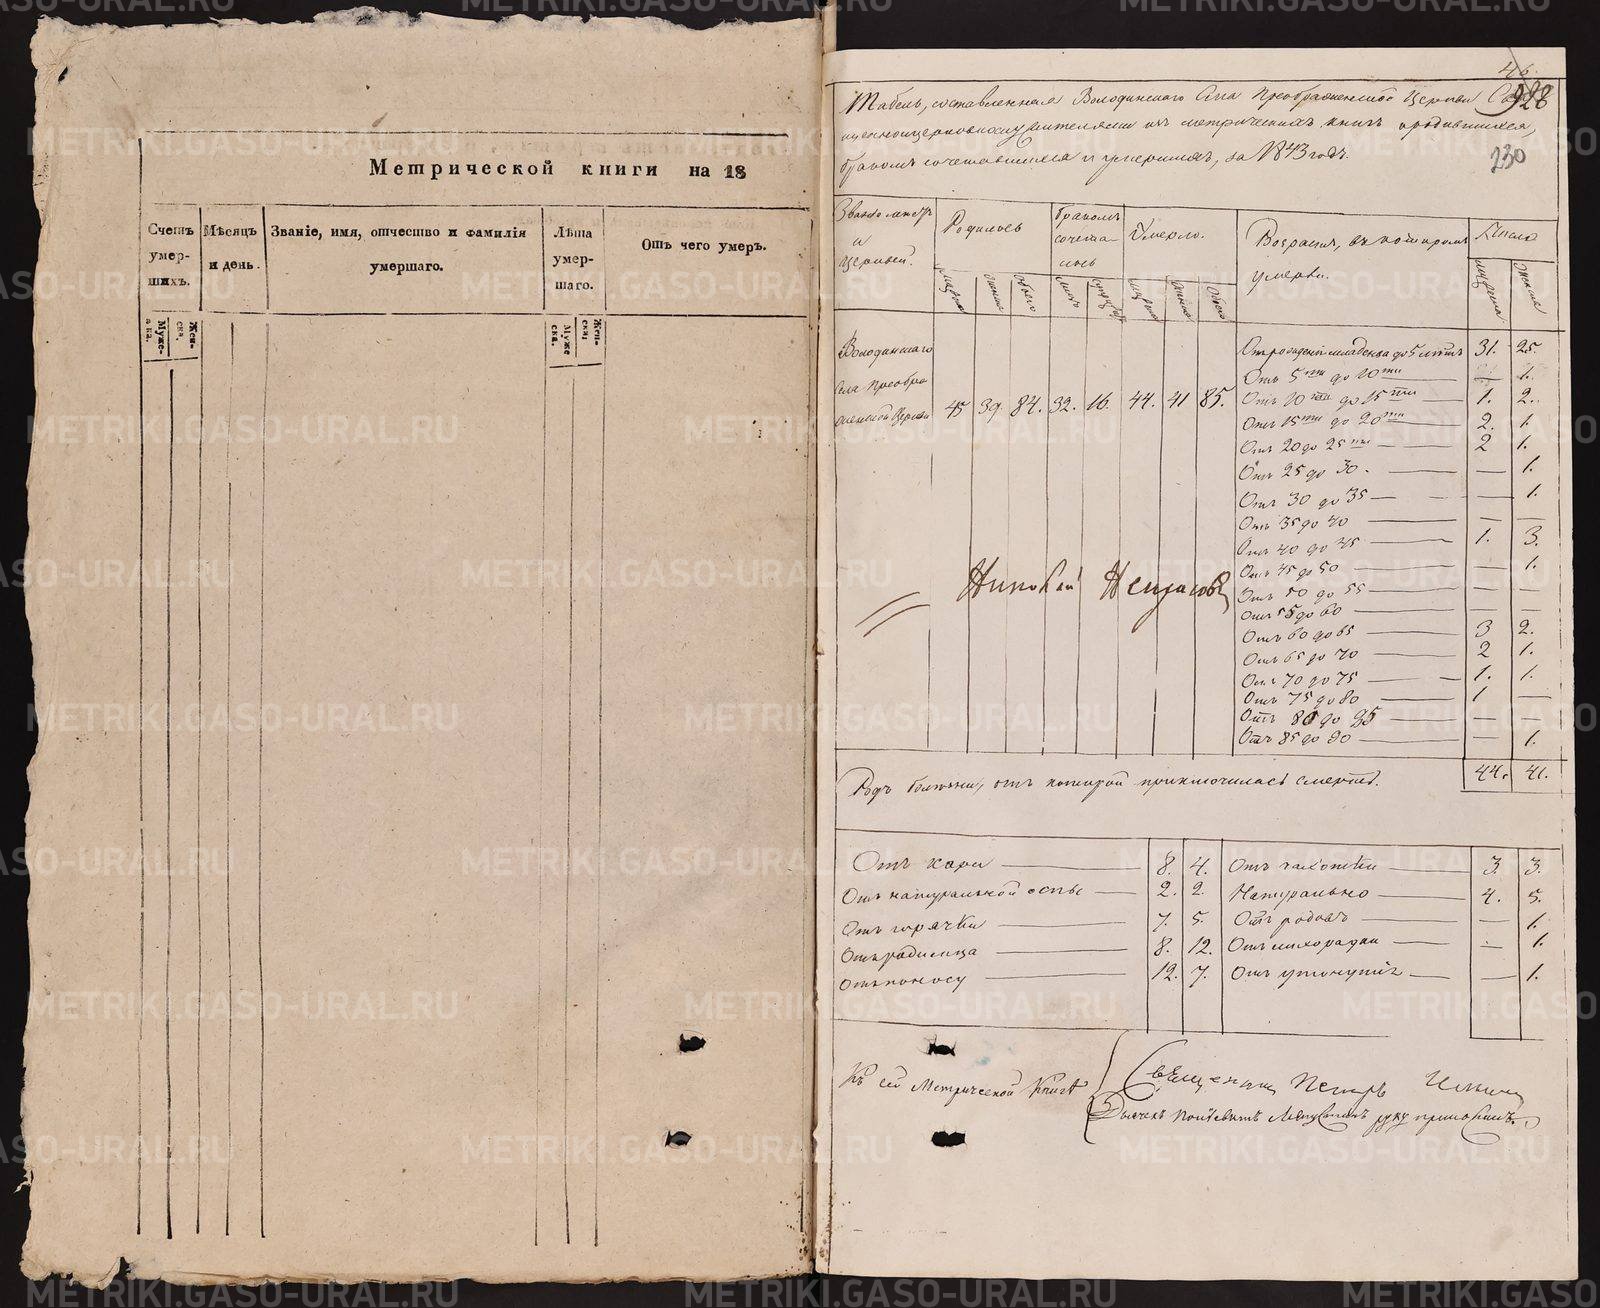 Метрической книги на 18
Счетъ умер- шихъ.
Мѣсяцъ и день.
Званіе, имя, отчество и фамилія умершаго.
Лѣта умер- шаго.
Отъ чего умеръ.
Муже- ска.
Жен- ска.
Муже ска.
Жен- ска.
46
928
230
Табель, составленная Володинскаго Села Преображенской Церкви
священноцерковнослужителями изъ метрическихъ книгъ о родившихся,
бракомъ сочетавшихся и умершихъ, за 1843 годъ.
и Церквей.
Родилось
бракомъ сочета- лось
Умерло.
Возрастъ, въ которомъ умерли.
Число
мужеска женска обоего
мужеска женска обоего
мужеска женска
Володинскаго
села Преобра
женской Церкви 45 39. 84. 32. 16. 44. 41 85.
Отъ рожденія младенца до 5 лѣтъ 31. 25.
Отъ 5ти до 10ти — — 1.
Отъ 10ти до 15ти — 1. 2.
Отъ 15ти до 20ти — 2. 1.
Отъ 20 до 25ти — 2 1.
Отъ 25 до 30. — — 1.
Отъ 30 до 35 — — 1.
Отъ 35 до 40 — — —
Отъ 40 до 45 — 1. 3.
Отъ 45 до 50 — — 1.
Отъ 50 до 55 — — —
Отъ 55 до 60 — — —
Отъ 60 до 65 — 3 2.
Отъ 65 до 70 — 2 1.
Отъ 70 до 75 — 1. 1.
Отъ 75 до 80 — 1 —
Отъ 80 до 85 — — —
Отъ 85 до 90 — — 1.
44. 41.
Николай Некрасовъ
Родъ болѣзни, отъ которой приключилась смерть.
Отъ кори — 8. 4. Отъ чахотки — 3. 3.
Отъ натуральной оспы — 2. 2. Натурально — 4. 5.
Отъ горячки — 7. 5. Отъ родовъ — — 1.
Отъ родимца — 8. 12. Отъ лихорадки — — 1.
Отъ поносу — 12. 7. Отъ утонутія — — 1.
Къ сей Метрической Книгѣ
Священникъ Петръ
Дьячекъ руку приложилъ.
METRIKI.GASO-URAL.RU